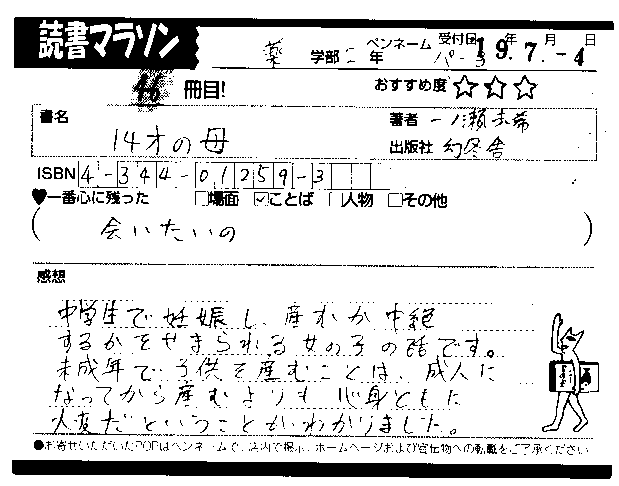 読書マラソン
薬 学部 二 年 ペンネーム パーヨ 受付日 19年7月-4日
冊目! おすすめ度 ☆☆☆
書名 14才の母
著者 一ノ瀬未希
出版社 幻冬舎
ISBN 4-344-01259-3
♥一番心に残った □場面 ☑ことば □人物 □その他
(会いたいの)
感想
中学生で妊娠し、産むか中絶
するかをせまられる女の子の話です。
未成年で子供を産むことは、成人に
なってから産むよりも心身ともに
大変だということがわかりました。
●お寄せいただいたPOPはペンネームで、店内で掲示、ホームページおよび宣伝物への転載をご了承ください